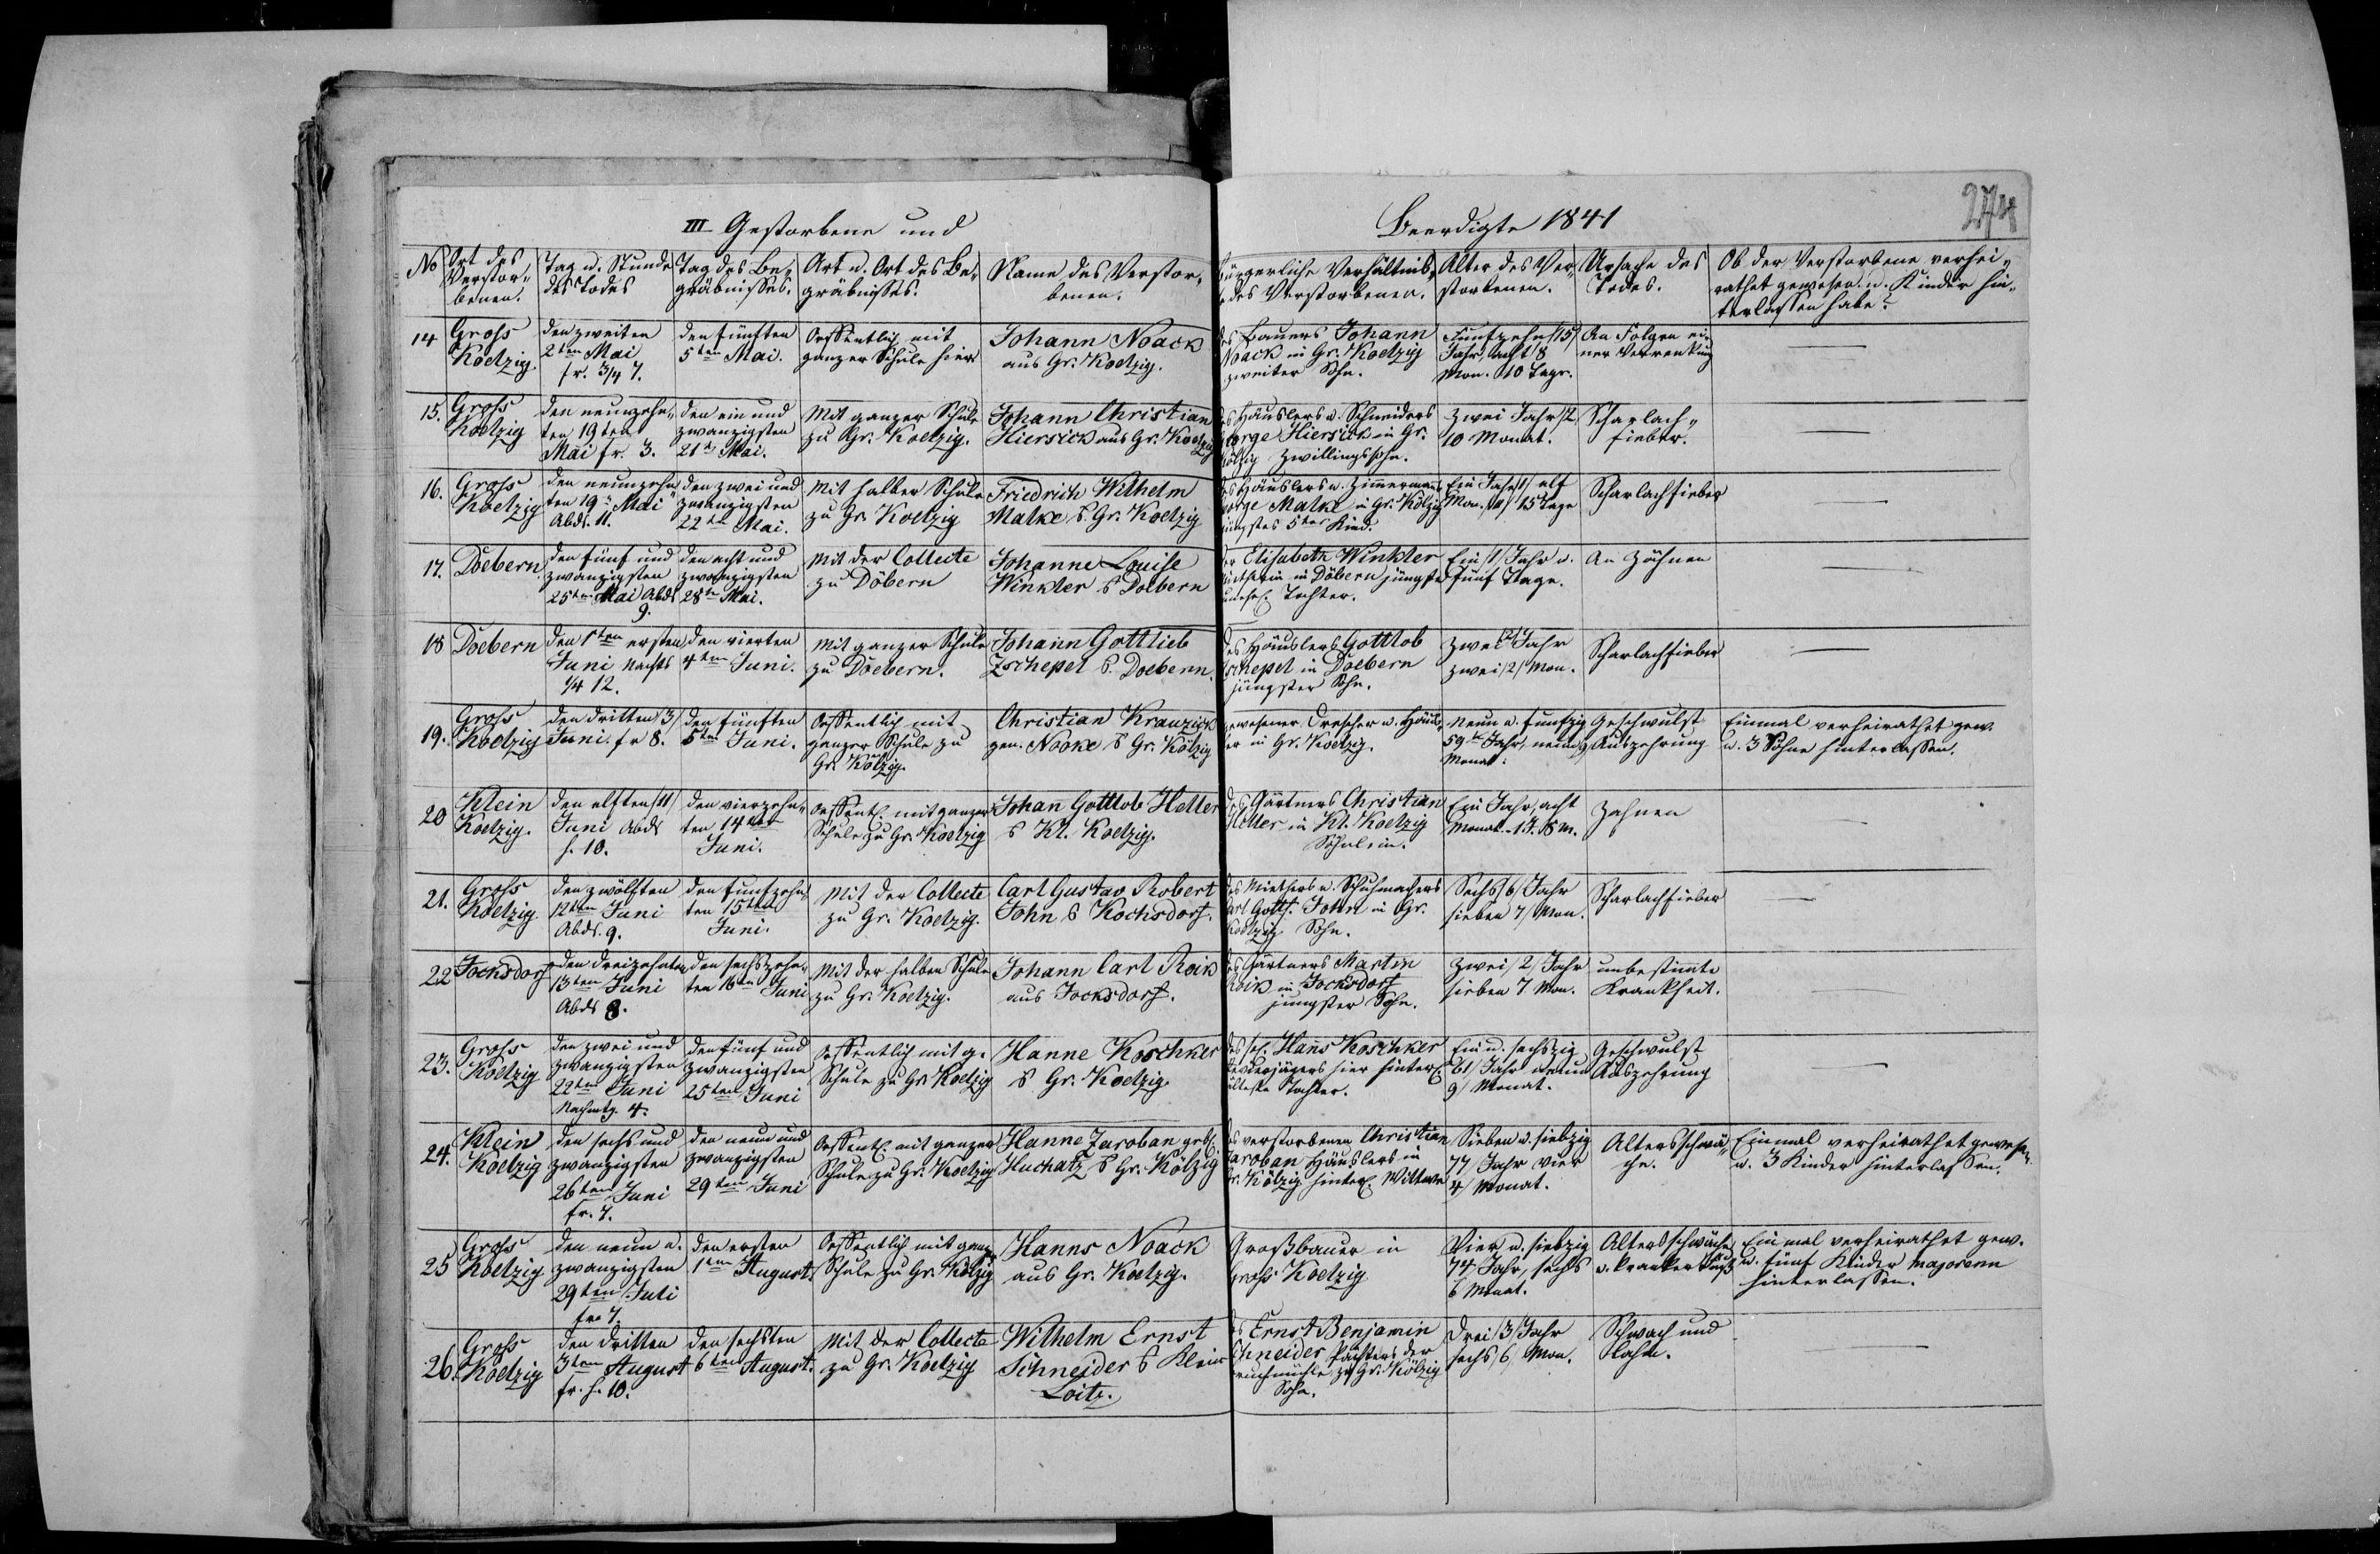 III Gestorbene und
Beerdigte 1841
274
No
Ort des
Verstor-
benen.
Tag u. Stunde
des Todes
Tag des Be-
gräbnisses.
Art u. Ort des Be-
gräbnisses.
Name des Verstor-
benen.
Bürgerliche Verhältnis-
des Verstorbenen.
Alter des Ver-
storbenen.
Ursache des
Todes.
Ob der Verstorbene verhei-
rathet gewesen u. Kinder hin-
terlassen habe?
14
Gross
Koelzig.
den zweiten
2ten Mai
fr. 3/4 7.
den fünften
5ten Mai.
Oeffentlich mit
ganzer Schule hier
Johann Noack
aus Gr. Koelzig.
des Bauers Johann
Noack in Gr. Koelzig
zweiter Sohn.
Funfzehn /15/
Jahr, acht /8
Mon. 10 Tage.
An Folgen ei-
ner Verrenkung
15.
Gross
Koelzig
den neunzehn-
ten 19ten
Mai fr. 3.
den ein und
zwanzigsten
21ten Mai.
Mit ganzer Schule
zu Gr. Koelzig.
Johann Christian
Hiersick aus Gr. Koelzig
des Häuslers u. Schneiders
George Hiersick in Gr.
Kölzig Zwillingssohn.
Zwei Jahr /2
10 Monat.
Scharlach-
fieber.
16.
Gross
Koelzig
den neunzehn-
ten 19ten Mai
Abds. 11.
den zwei und
zwanzigsten
22ten Mai.
Mit halber Schule
zu Gr. Koelzig
Friedrich Wilhelm
Matke b. Gr. Koelzig
des Häuslers u. Zimmermanns
George Matke in Gr. Kölzig
jüngstes 5tes Kind.
Ein Jahr /1/ elf
Mon. /11/ 15 Tage
Scharlachfieber
17.
Doebern.
den fünf und
zwanzigsten
25ten Mai Abds
9.
den acht und
zwanzigsten
28ten Mai.
Mit der Collecte
zu Döbern
Johanne Louise
Winkler b Doebern
der Elisabeth Winkler
in Döbern jüngste
unehel. Tochter.
Ein /1/ Jahr u.
fünf Tage.
An Zähnen
18
Doebern
den 1ten ersten
Juni Nachts
1/4 12.
den vierten
4ten Juni.
Mit ganzer Schule
zu Doebern.
Johann Gottlieb
Zschepel b. Doebern.
des Häuslers Gottlob
Zschepel in Doebern
jüngster Sohn.
Zwei /2/ Jahr
zwei /2/ Mon.
Scharlachfieber
19.
Gross
Koelzig
den dritten /3/
Juni. fr 8.
den fünften
5ten Juni.
Oeffentlich mit
ganzer Schule zu
Gr. Kölzig.
Christian Kranzick
gen. Nooke b Gr. Kölzig
gewesener Drescher u. Häusl-
er in Gr. Koelzig.
Neun u. funfzig
59 Jahr, neun /9
Monat.
Geschwulst
Auszehrung
Einmal verheirathet gew.
u. 3 Söhne hinterlassen.
20
Klein
Koelzig.
den elften /11/
Juni Abds
h. 10.
den vierzehn-
ten 14ten
Juni.
Oeffentl. mit ganzer
Schule zu Gr. Koelzig
Johan Gottlob Heller
b Kl. Koelzig.
des Gärtners Christian
Heller in Kl. Koelzig
Söhnlein.
Ein Jahr, acht
Monat. 1 J. 8 M.
Zahnen
21.
Gross
Koelzig
den zwölften
12ten Juni
Abds. 9.
den funfzehn-
ten 15ten
Juni.
Mit der Collecte
zu Gr. Koelzig.
Carl Gustav Robert
John b Kochsdorf.
des Miethers u. Schuhmachers
Carl Gottf. John in Gr.
Koelzig Sohn.
Sechs /6/ Jahr
sieben 7/ Mon.
Scharlachfieber
22
Jocksdorf
den dreizehnten
13ten Juni
Abds 8.
den sechszehn-
ten 16ten Juni
Mit der halben Schule
zu Gr. Koelzig.
Johann Carl Roik
aus Jocksdorf.
des Gärtners Martin
Roik in Jocksdorf
jüngster Sohn.
Zwei /2/ Jahr
sieben 7 Mon.
unbestimmte
Krankheit.
23.
Gross
Koelzig
den zwei und
zwanzigsten
22ten Juni
Nachmtg. 4.
den fünf und
zwanzigsten
25ten Juni
Oeffentlich mit g.
Schule zu Gr. Koelzig
Hanne Koschker
b Gr. Koelzig.
des sel. Hans Koschker
Revierjägers hier hinterl.
älteste Tochter.
Ein u. sechszig
61/ Jahr neun
9/ Monat.
Geschwulst
Auszehrung
24.
Klein
Koelzig
den sechs und
zwanzigsten
26ten Juni
fr. 7.
den neun und
zwanzigsten
29ten Juni
Oeffentl. mit ganzer
Schule zu Gr. Koelzig
Hanne Zaroban geb.
Huchatz b Gr. Kölzig
des verstorbenen Christian
Zaroban Häuslers in
Gr. Kölzig hinterl. Wittwe
Sieben u. siebzig
77/ Jahr vier
4/ Monat.
Altersschwä-
che.
Einmal verheirathet gewesen
u. 3 Kinder hinterlassen.
25
Gross
Koelzig
den neun u.
zwanzigsten
29ten Juli
fr. 7.
den ersten
1ten August
Oeffentlich mit ganz.
Schule zu Gr. Kölzig
Hanns Noack
aus Gr. Koelzig.
Großbauer in
Gross Koelzig
Vier u. siebzig
74 Jahr, sechs
6 Monat.
Altersschwäche
u. kranker
Einmal verheirathet gew.
u. fünf Kinder majorenn
hinterlassen.
26.
Gross
Koelzig
den dritten
3ten August
fr. h. 10.
den sechsten
6ten August.
Mit der Collecte
zu Gr. Koelzig
Wilhelm Ernst
Schneider b Klein
Loitz.
des Ernst Benjamin
Schneider Pächters der
Bruchmühle zu Gr. Kölzig
Sohn.
Drei /3/ Jahr
sechs /6/ Mon.
Schwach und
lahm.